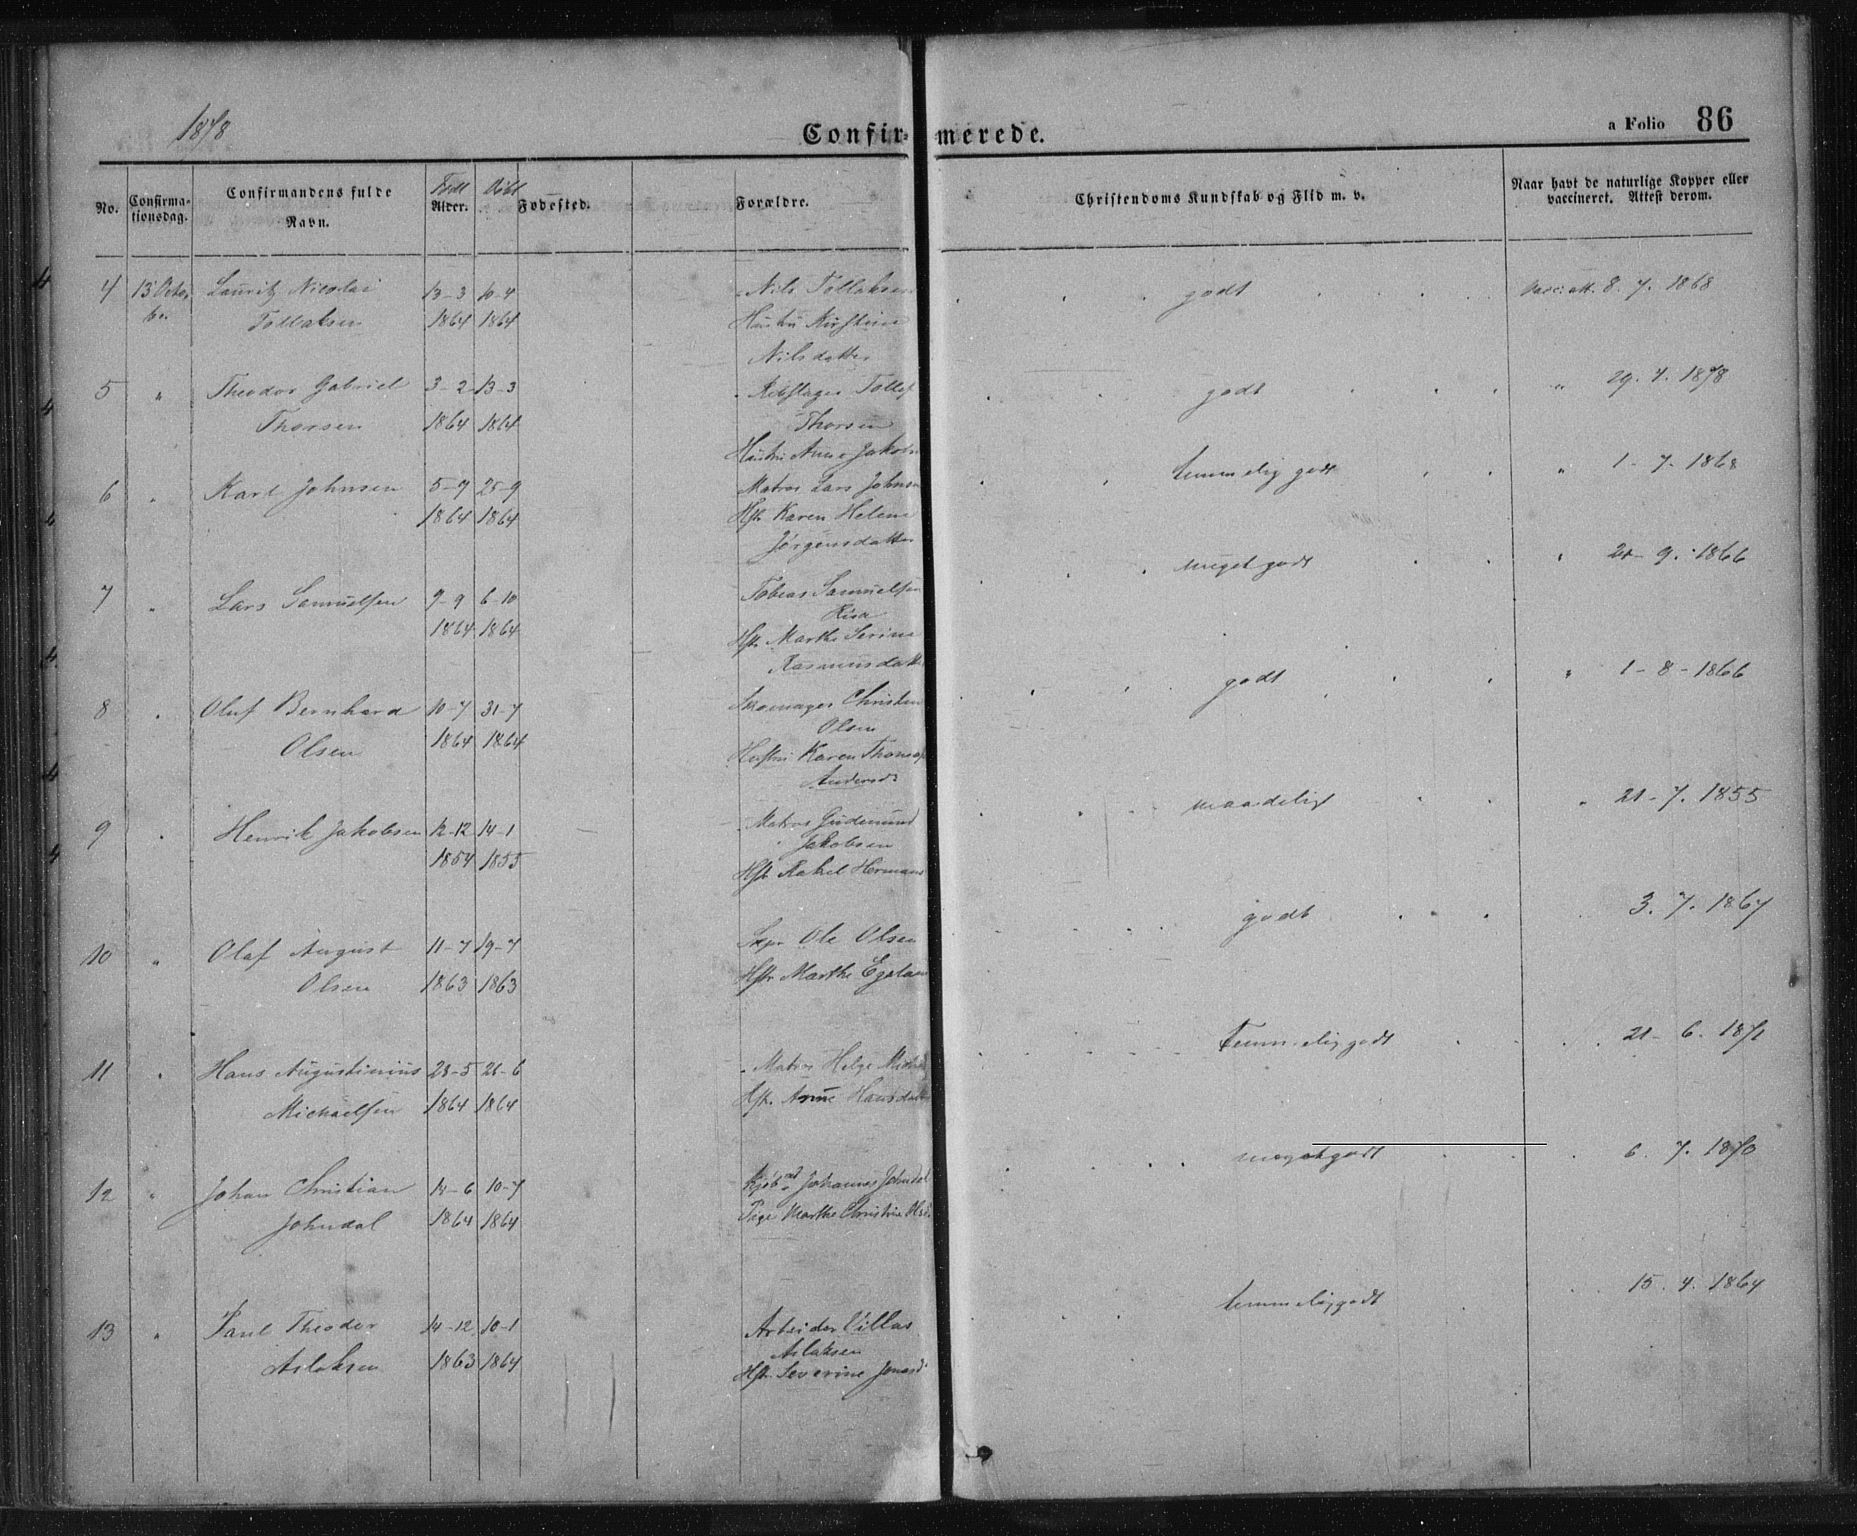 1878
Confirmerede.
a Folio 86
No.
Confirma-
tionsdag.
Confirmandens fulde
Navn.
Født
Alder.
Døbt
Fødested.
Forældre.
Christendoms Kundskab og Flid m. v.
Naar havt de naturlige Kopper eller
vaccineret. Attest derom.
4 13 Octo- Lauritz Nicolai 13-3 10-4 Nils Tollaksen godt 8. 7. 1868
ber Tollaksen 1864 1864 Hustru Kirstine
Nilsdatter
5 " Theodor Gabriel 3-2 13-3 Rebslager Tollef godt " 29. 7. 1878
Thorsen 1864 1864 Thorsen
Hustru Anne Jakobs
6 " Karl Johnsen 5-9 25-9 Matros Lars Johnsen temmelig godt " 1-7-1868
1864 1864 Hst. Karen Helene
Jørgensdatter
7 " Lars Samuelsen 9-9 6-10 Tobias Samuelsen meget godt " 9. 1866
1864 1864 Risa
Hst. Marthe Serine
Rasmusdatt
8 " Oluf Bernhard 10-7 31-7 Skomager Christen godt " 1-8-1866
Olsen 1864 1864 Olsen
Hustru Karen
Andersd
9 " Henrik Jakobsen 12-12 14-1 Matros Gudmund maadeligt " 21-7. 1855
1854 1855 Jakobsen
Hst. Rakel Hermans
10 " Olaf August 11-7 19-7 Ole Olsen godt 3. 7. 1867
Olsen 1863 1863 Hst. Marthe
11 " Hans Augustinius 28-5 26-6 Matros Helge temmelig godt 21-6. 1871
Michaelsen 1864 1864 Hst. Anne Hansdatter
12 " Johan Christian 14-6 10-7 Johannes Johndal meget godt 6. 7. 1870
Johndal 1864 1864 Pige Marthe Christine
13 " Paul Theodor 14-12 10-1 Arbeider Villas temmelig godt 15. 4. 1864
Aslaksen 1863 1864 Aslaksen
Hst. Severine Jonasd